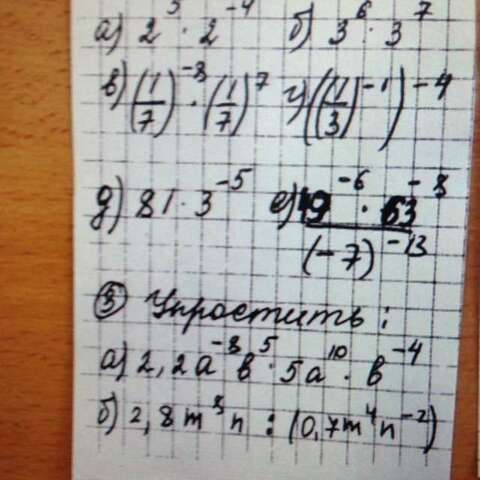 а) 2⁵ · 2⁻⁴ б) 3⁶ · 3⁷
в) (1/7)⁻⁸ · (1/7)⁷ г) ((1/3)⁻¹)⁻⁴
д) 81 · 3⁻⁵ е) 49⁻⁶ · 63⁻⁸ / (-7)⁻¹³
③ Упростить :
а) 2,2a⁻⁸b⁵ · 5a¹⁰ · b⁻⁴
б) 2,8m⁸n : (0,7m⁴n⁻²)